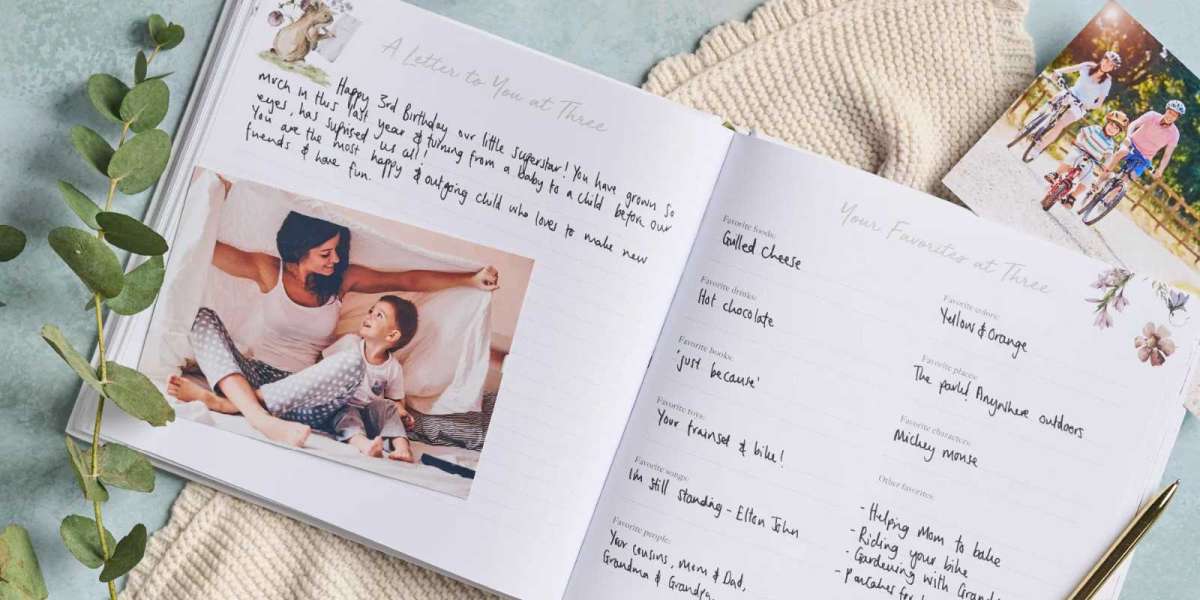 A Letter to You at Three
Happy 3rd Birthday our little superstar! You have grown so
much in this last year & turning from a baby to a child before our
eyes, has suprised us all!
You are the most happy & outgoing child who loves to make new
friends & have fun.
Your Favorites at Three
Favorite foods:
Grilled Cheese
Favorite drinks:
Hot chocolate
Favorite books:
'just because'
Favorite toys:
Your trainset & bike!
Favorite songs:
I'm still standing - Elton John
Favorite people:
Your cousins, Mom & Dad,
Grandma & Grandpa,
Favorite colors:
Yellow & Orange
Favorite places:
The park! Anywhere outdoors
Favorite characters:
Mickey mouse
Other favorites:
- Helping Mom to bake
- Riding your bike
- Gardening with
- Pancakes for